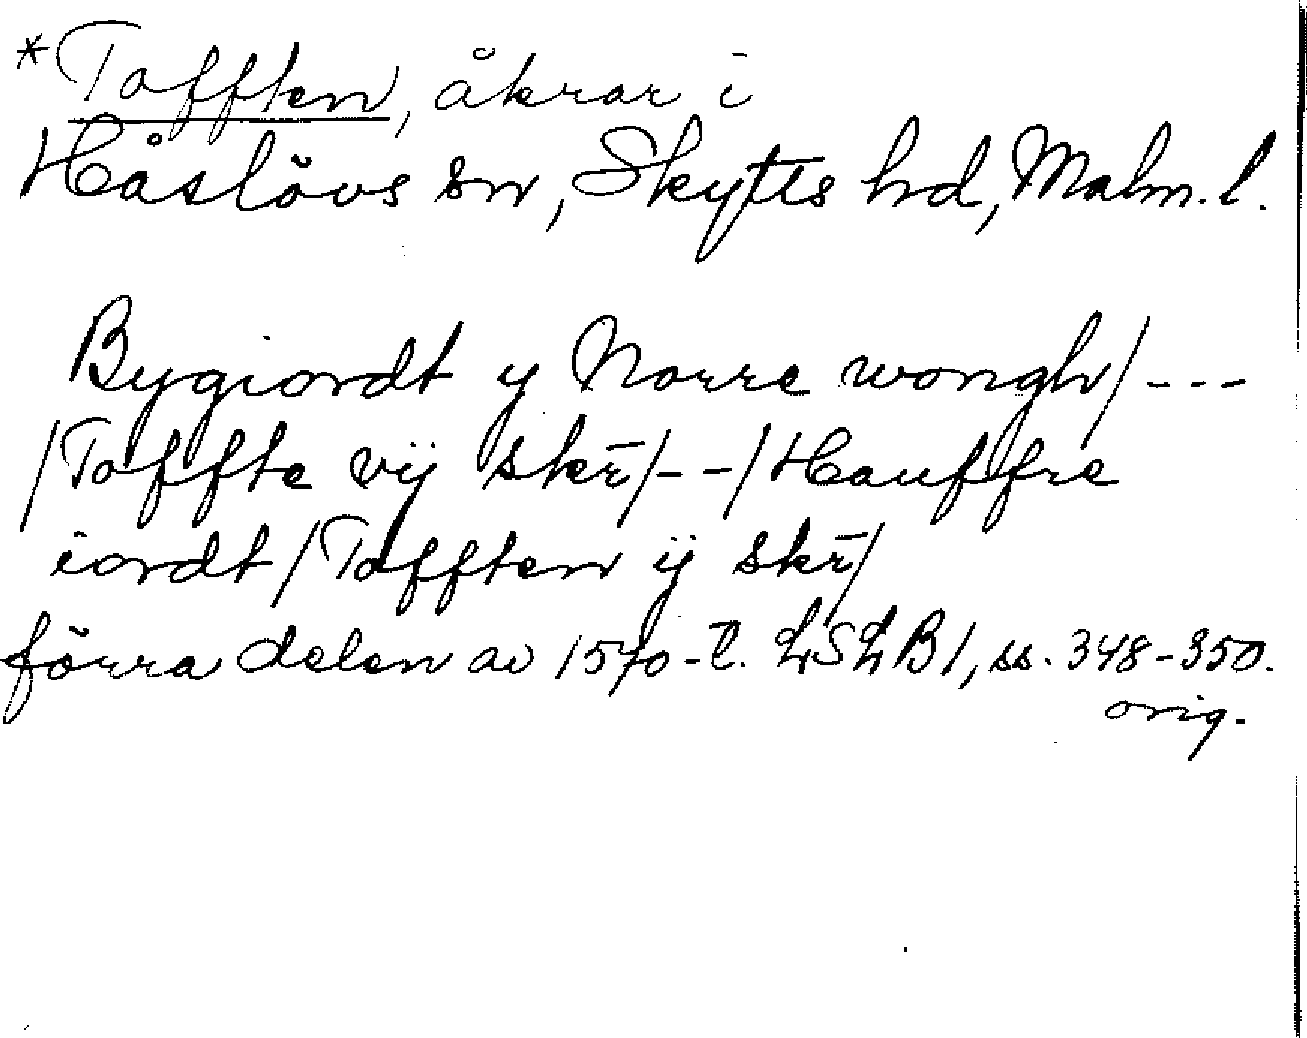 *Tofften, åkrar i
Håslövs sn, Skytts hd, Malm. l.
Bygiordt y Norre wongh/---
/Toffte vij skr̄/--/Hauffre
iordt/Tofften ij skr̄/
förra delen av 1570-t. LSLB1, ss. 348-350.
orig.